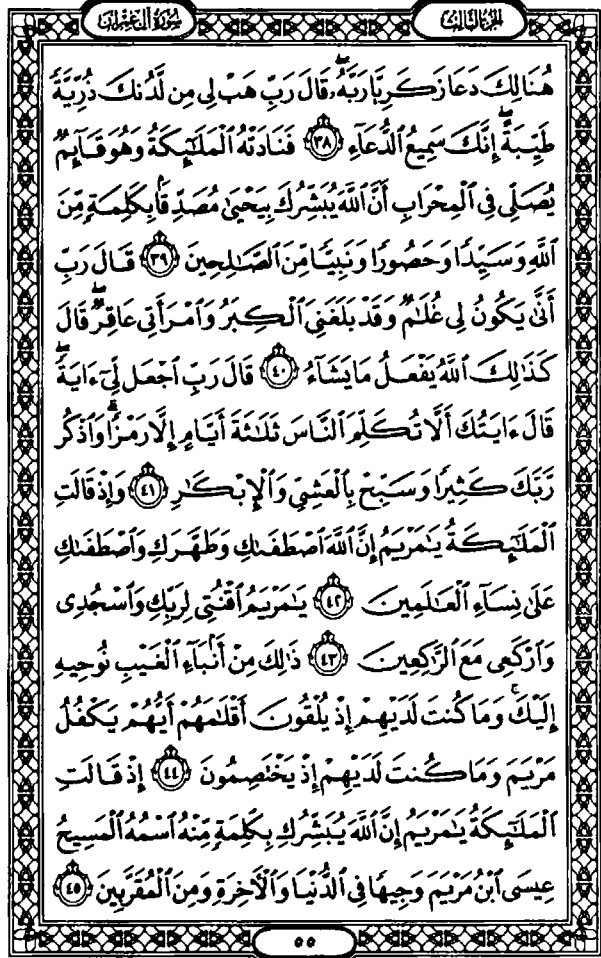 سُورَةُ آلِ عِمْرَانَ
الجُزءُ الثَّالِثُ
هُنَالِكَ دَعَا زَكَرِيَّا رَبَّهُۥ ۖ قَالَ رَبِّ هَبْ لِى مِن لَّدُنكَ ذُرِّيَّةً
طَيِّبَةً ۖ إِنَّكَ سَمِيعُ ٱلدُّعَآءِ ٣٨ فَنَادَتْهُ ٱلْمَلَـٰٓئِكَةُ وَهُوَ قَآئِمٌ
يُصَلِّى فِى ٱلْمِحْرَابِ أَنَّ ٱللَّهَ يُبَشِّرُكَ بِيَحْيَىٰ مُصَدِّقًۢا بِكَلِمَةٍ مِّنَ
ٱللَّهِ وَسَيِّدًا وَحَصُورًا وَنَبِيًّا مِّنَ ٱلصَّـٰلِحِينَ ٣٩ قَالَ رَبِّ
أَنَّىٰ يَكُونُ لِى غُلَـٰمٌ وَقَدْ بَلَغَنِىَ ٱلْكِبَرُ وَٱمْرَأَتِى عَاقِرٌ ۖ قَالَ
كَذَٰلِكَ ٱللَّهُ يَفْعَلُ مَا يَشَآءُ ٤٠ قَالَ رَبِّ ٱجْعَل لِّىٓ ءَايَةً ۖ
قَالَ ءَايَتُكَ أَلَّا تُكَلِّمَ ٱلنَّاسَ ثَلَـٰثَةَ أَيَّامٍ إِلَّا رَمْزًا ۗ وَٱذْكُر
رَّبَّكَ كَثِيرًا وَسَبِّحْ بِٱلْعَشِىِّ وَٱلْإِبْكَـٰرِ ٤١ وَإِذْ قَالَتِ
ٱلْمَلَـٰٓئِكَةُ يَـٰمَرْيَمُ إِنَّ ٱللَّهَ ٱصْطَفَىٰكِ وَطَهَّرَكِ وَٱصْطَفَىٰكِ
عَلَىٰ نِسَآءِ ٱلْعَـٰلَمِينَ ٤٢ يَـٰمَرْيَمُ ٱقْنُتِى لِرَبِّكِ وَٱسْجُدِى
وَٱرْكَعِى مَعَ ٱلرَّٰكِعِينَ ٤٣ ذَٰلِكَ مِنْ أَنۢبَآءِ ٱلْغَيْبِ نُوحِيهِ
إِلَيْكَ ۚ وَمَا كُنتَ لَدَيْهِمْ إِذْ يُلْقُونَ أَقْلَـٰمَهُمْ أَيُّهُمْ يَكْفُلُ
مَرْيَمَ وَمَا كُنتَ لَدَيْهِمْ إِذْ يَخْتَصِمُونَ ٤٤ إِذْ قَالَتِ
ٱلْمَلَـٰٓئِكَةُ يَـٰمَرْيَمُ إِنَّ ٱللَّهَ يُبَشِّرُكِ بِكَلِمَةٍ مِّنْهُ ٱسْمُهُ ٱلْمَسِيحُ
عِيسَى ٱبْنُ مَرْيَمَ وَجِيهًا فِى ٱلدُّنْيَا وَٱلْـَٔاخِرَةِ وَمِنَ ٱلْمُقَرَّبِينَ ٤٥
٥٥